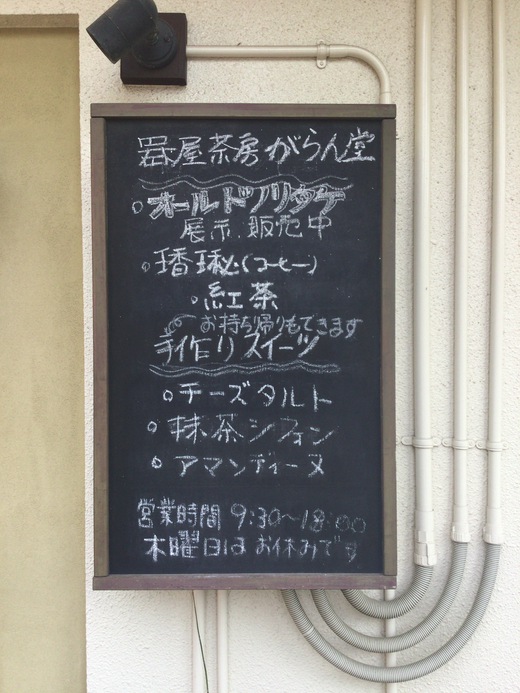 器屋茶房がらん堂
○オールドノリタケ
展示.販売中
○琋琲(コーヒー)
○紅茶
お持ち帰りもできます
手作りスイーツ
○チーズタルト
○抹茶シフォン
○アマンディーヌ
営業時間 9:30〜18:00
木曜日はお休みです